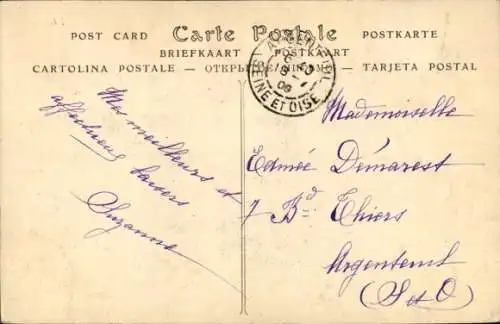 POST CARD Carte Postale POSTKARTE
BRIEFKAART — POSTKAART
CARTOLINA POSTALE — ОТКРЫТОЕ ПИСЬМО — TARJETA POSTAL
ARGENTEUIL
SEINE ET OISE
Mes meilleurs et
affectueux baisers
Suzanne
Mademoiselle
Edmée Démarest
7 Bd Thiers
Argenteuil
(S et O)